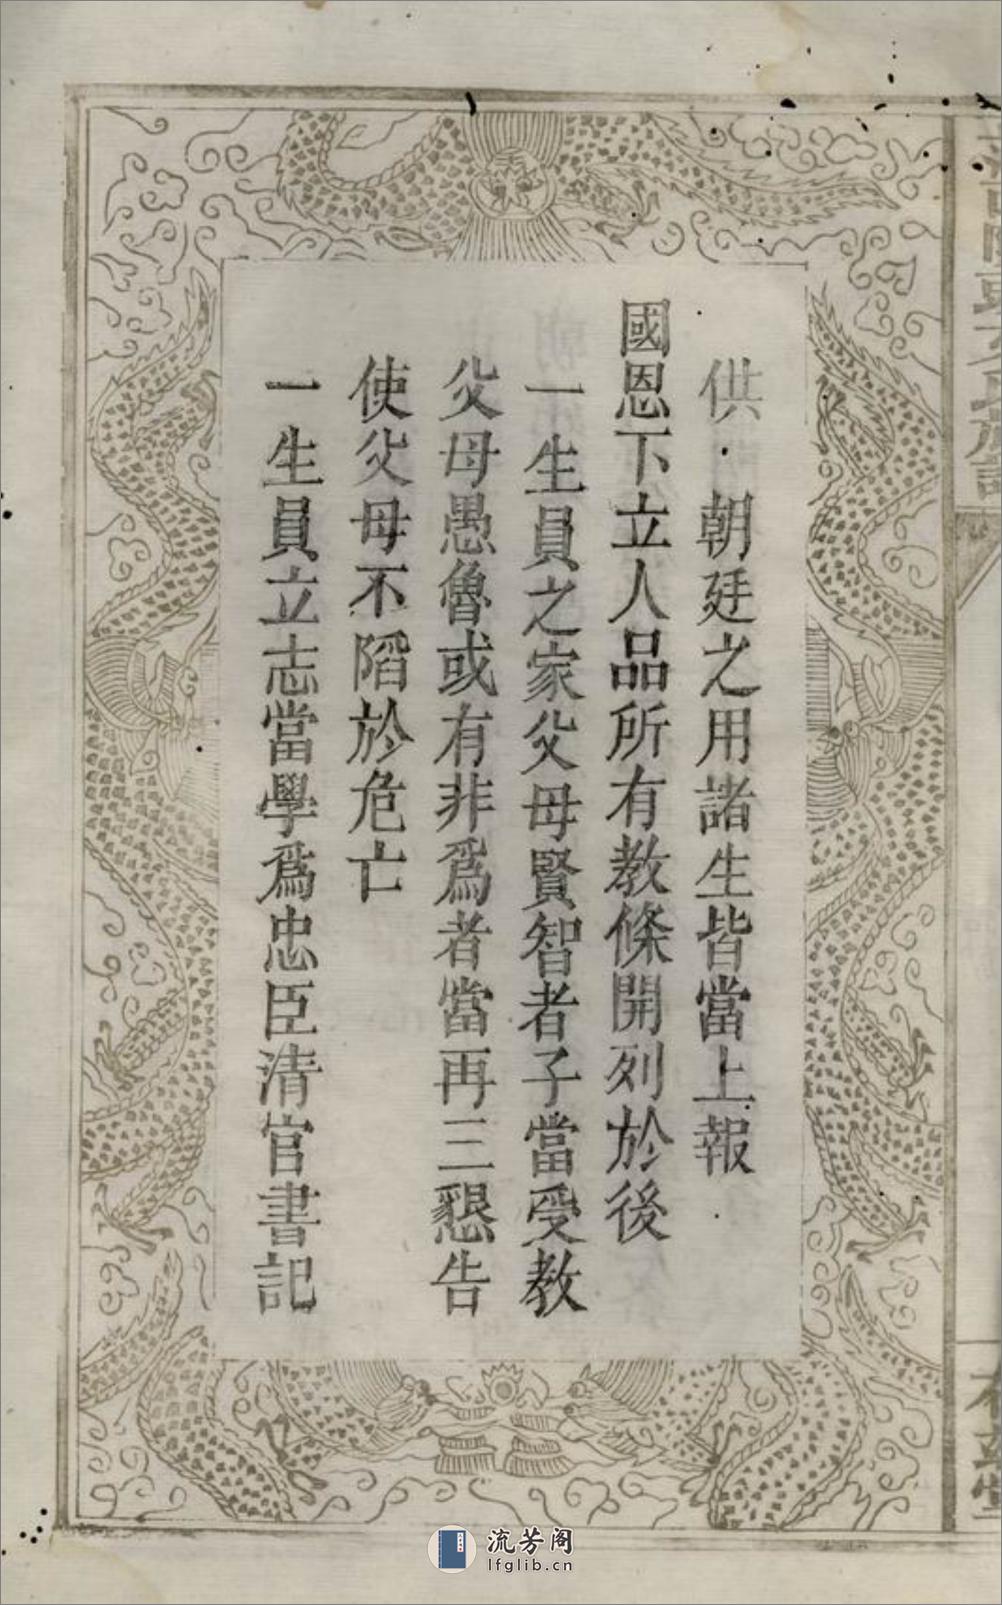 供 朝廷之用諸生皆當上報
國恩下立人品所有教條開列於後
一生員之家父母賢智者子當受教
父母愚魯或有非爲者當再三懇告
使父母不陷於危亡
一生員立志當學爲忠臣清官書記
流芳阁
lfglib.cn